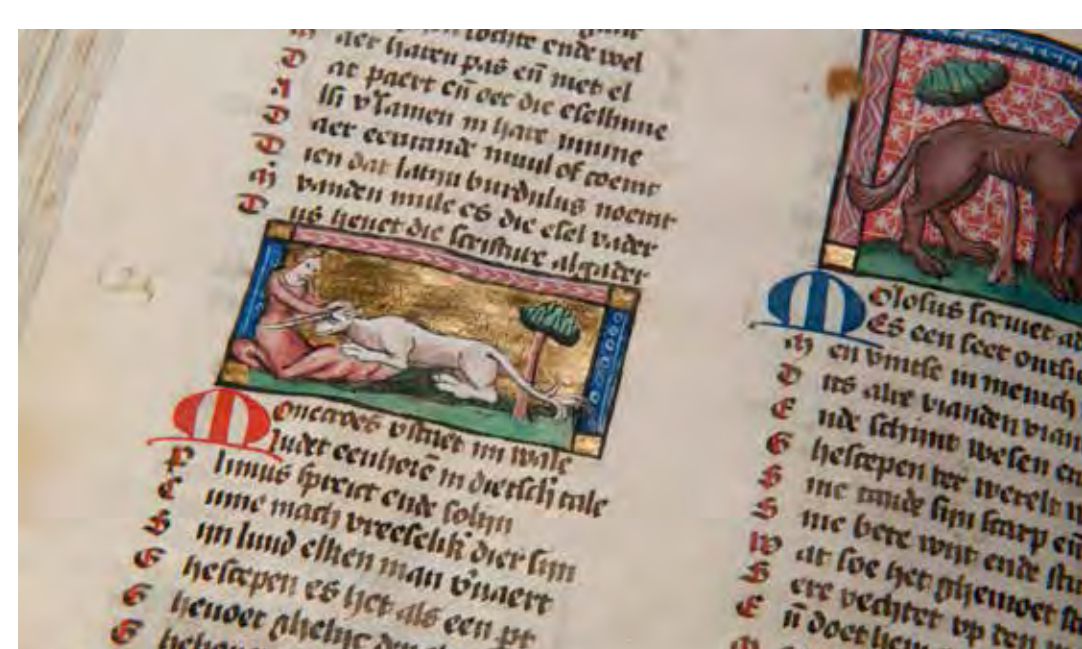 tochte ende wel
D aer haren pas en̄ met el
D at paert en̄ oec die eselinne
lsi vnamen in hare minne
D aer ecurande muul of coemt
D ien dat latijn burdulus noemt
vanden mule es die esel vader
D us heuet die scriftuer algader
M onocroes vstaet in wale
ludet eenhorē in dietsch tale
P linius spreict ende solijn
E nne mach vreeselik dier sijn
S ijn luud elken man vuaert
G hescepen es het als een pt
G henoet ghelijc
M olosus scriuet
ES een seer
M en vintse in menich
D its alre vianden vian
E nde schijnt wesen en
G hescepen ter werelt
S ine tande sijn scarp en̄
S ine bere wijt ende stu
W at soe het ghemoet
S ere vechtet vp den
E n̄ doet hem